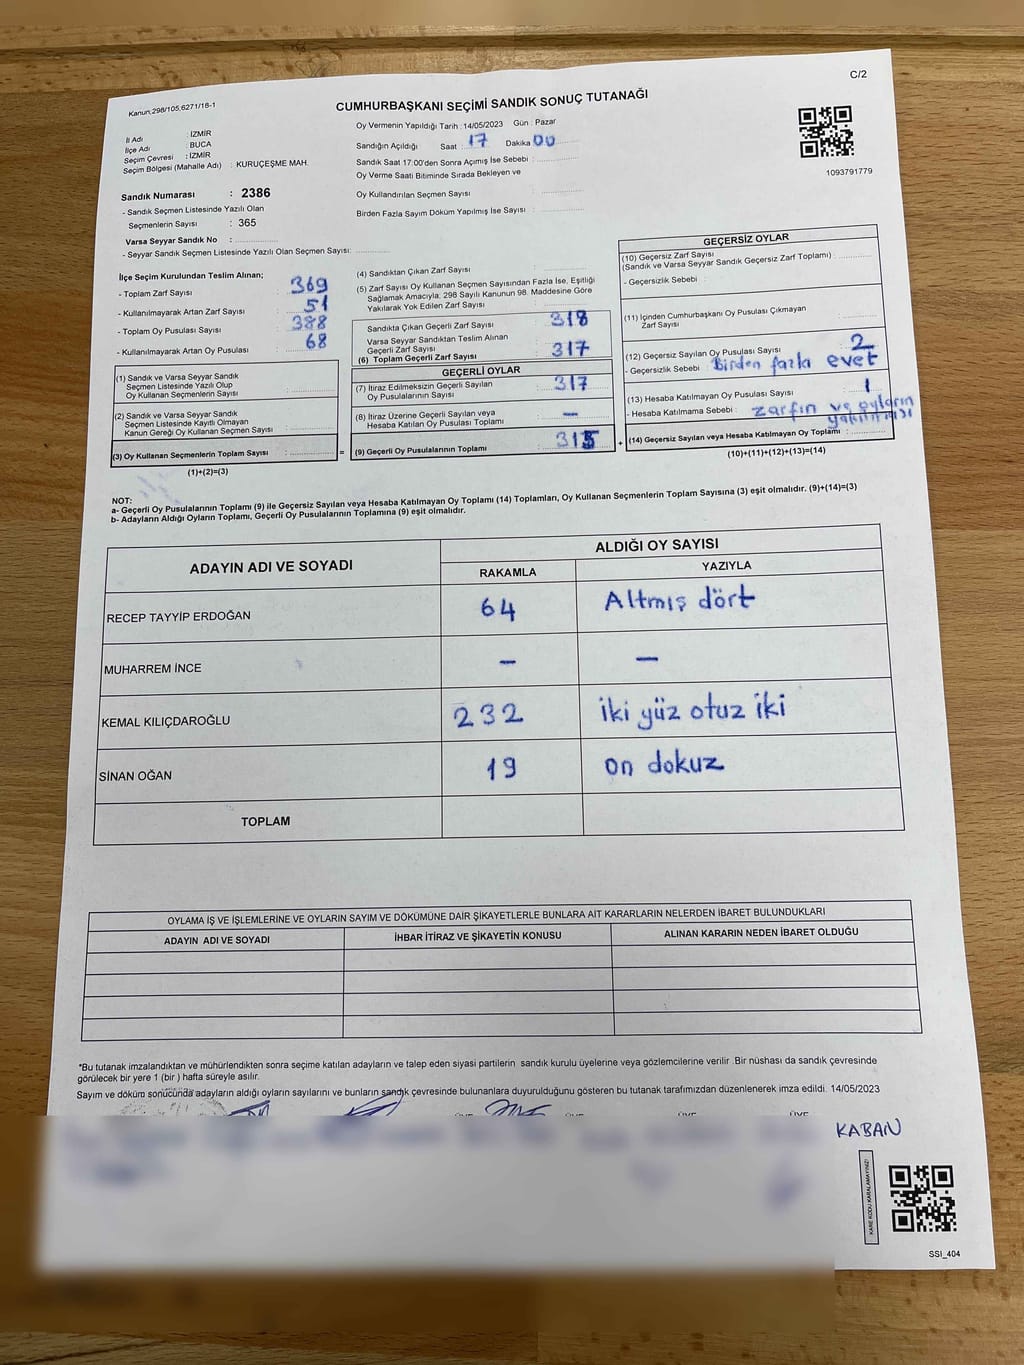 C/2
Kanun:298/105,6271/16-1
CUMHURBAŞKANI SEÇİMİ SANDIK SONUÇ TUTANAĞI
İl Adı : İZMİR
İlçe Adı : BUCA
Seçim Çevresi : İZMİR
Seçim Bölgesi (Mahalle Adı) : KURUÇEŞME MAH.
Oy Vermenin Yapıldığı Tarih : 14/05/2023 Gün : Pazar
Sandığın Açıldığı Saat : 17 Dakika 00
Sandık Saat 17:00'den Sonra Açımış İse Sebebi :
Oy Verme Saati Bitiminde Sırada Bekleyen ve
Oy Kullandırılan Seçmen Sayısı :
Birden Fazla Sayım Döküm Yapılmış İse Sayısı :
1093791779
Sandık Numarası : 2386
- Sandık Seçmen Listesinde Yazılı Olan
Seçmenlerin Sayısı : 365
Varsa Seyyar Sandık No :
- Seyyar Sandık Seçmen Listesinde Yazılı Olan Seçmen Sayısı:
İlçe Seçim Kurulundan Teslim Alınan;
- Toplam Zarf Sayısı : 369
- Kullanılmayarak Artan Zarf Sayısı : 51
- Toplam Oy Pusulası Sayısı : 388
- Kullanılmayarak Artan Oy Pusulası : 68
(1) Sandık ve Varsa Seyyar Sandık
Seçmen Listesinde Yazılı Olup
Oy Kullanan Seçmenlerin Sayısı :
(2) Sandık ve Varsa Seyyar Sandık
Seçmen Listesinde Kayıtlı Olmayan
Kanun Gereği Oy Kullanan Seçmen Sayısı :
(3) Oy Kullanan Seçmenlerin Toplam Sayısı : =
(1)+(2)=(3)
(4) Sandıktan Çıkan Zarf Sayısı :
(5) Zarf Sayısı Oy Kullanan Seçmen Sayısından Fazla İse, Eşitliği
Sağlamak Amacıyla; 298 Sayılı Kanunun 98. Maddesine Göre
Yakılarak Yok Edilen Zarf Sayısı :
Sandıkta Çıkan Geçerli Zarf Sayısı : 318
Varsa Seyyar Sandıktan Teslim Alınan
Geçerli Zarf Sayısı :
(6) Toplam Geçerli Zarf Sayısı : 317
GEÇERLİ OYLAR
(7) İtiraz Edilmeksizin Geçerli Sayılan
Oy Pusulalarının Sayısı : 317
(8) İtiraz Üzerine Geçerli Sayılan veya
Hesaba Katılan Oy Pusulası Toplamı : —
(9) Geçerli Oy Pusulalarının Toplamı : 315 +
GEÇERSİZ OYLAR
(10) Geçersiz Zarf Sayısı
(Sandık ve Varsa Seyyar Sandık Geçersiz Zarf Toplamı) :
- Geçersizlik Sebebi :
(11) İçinden Cumhurbaşkanı Oy Pusulası Çıkmayan
Zarf Sayısı :
(12) Geçersiz Sayılan Oy Pusulası Sayısı : 2
- Geçersizlik Sebebi : Birden fazla evet
(13) Hesaba Katılmayan Oy Pusulası Sayısı : 1
- Hesaba Katılmama Sebebi : zarfın ve oyların
(14) Geçersiz Sayılan veya Hesaba Katılmayan Oy Toplamı :
(10)+(11)+(12)+(13)=(14)
NOT:
a- Geçerli Oy Pusulalarının Toplamı (9) ile Geçersiz Sayılan veya Hesaba Katılmayan Oy Toplamı (14) Toplamları, Oy Kullanan Seçmenlerin Toplam Sayısına (3) eşit olmalıdır. (9)+(14)=(3)
b- Adayların Aldığı Oyların Toplamı, Geçerli Oy Pusulalarının Toplamına (9) eşit olmalıdır.
ADAYIN ADI VE SOYADI ALDIĞI OY SAYISI
RAKAMLA YAZIYLA
RECEP TAYYİP ERDOĞAN 64 Altmış dört
MUHARREM İNCE — —
KEMAL KILIÇDAROĞLU 232 iki yüz otuz iki
SİNAN OĞAN 19 on dokuz
TOPLAM
OYLAMA İŞ VE İŞLEMLERİNE VE OYLARIN SAYIM VE DÖKÜMÜNE DAİR ŞİKAYETLERLE BUNLARA AİT KARARLARIN NELERDEN İBARET BULUNDUKLARI
ADAYIN ADI VE SOYADI İHBAR İTİRAZ VE ŞİKAYETİN KONUSU ALINAN KARARIN NEDEN İBARET OLDUĞU
*Bu tutanak imzalandıktan ve mühürlendikten sonra seçime katılan adayların ve talep eden siyasi partilerin sandık kurulu üyelerine veya gözlemcilerine verilir .Bir nüshası da sandık çevresinde
görülecek bir yere 1 (bir ) hafta süreyle asılır.
Sayım ve döküm sonucunda adayların aldığı oyların sayılarını ve bunların sandık çevresinde bulunanlara duyurulduğunu gösteren bu tutanak tarafımızdan düzenlenerek imza edildi. 14/05/2023
KABAN
KARE KODU KARALAMAYINIZ!
SSİ_404